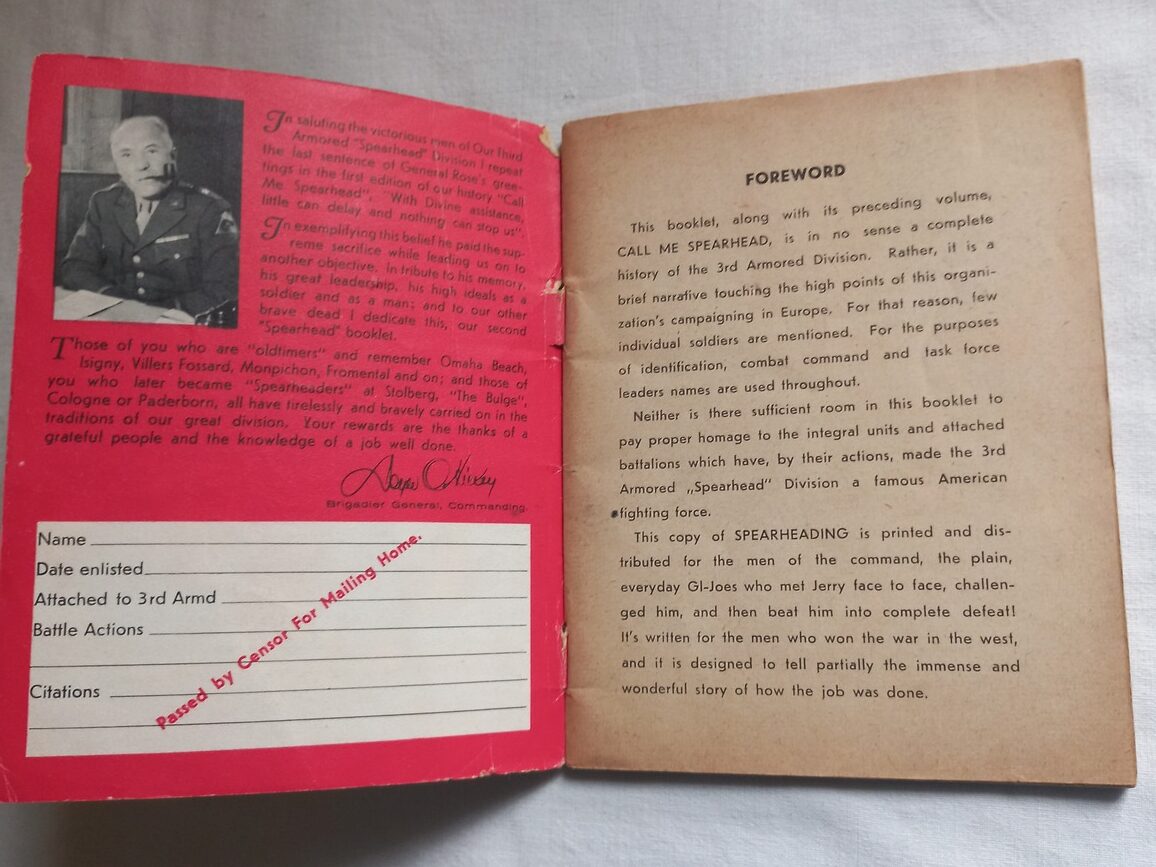 In saluting the victorious men of Our Third
Armored "Spearhead" Division I repeat
the last sentence of General Rose's gree-
tings in the first edition of our history "Call
Me Spearhead". "With Divine assistance,
little can delay and nothing can stop us".
In exemplifying this belief he paid the sup-
reme sacrifice while leading us on to
another objective. In tribute to his memory,
his great leadership, his high ideals as a
soldier and as a man; and to our other
brave dead I dedicate this, our second
"Spearhead" booklet.
Those of you who are "oldtimers" and remember Omaha Beach,
Isigny, Villers Fossard, Monpichon, Fromental and on; and those of
you who later became "Spearheaders" at Stolberg, "The Bulge",
Cologne or Paderborn, all have tirelessly and bravely carried on in the
traditions of our great division. Your rewards are the thanks of a
grateful people and the knowledge of a job well done.
Brigadier General, Commanding.
Name
Date enlisted
Attached to 3rd Armd
Battle Actions
Citations
Passed by Censor For Mailing Home.
FOREWORD
This booklet, along with its preceding volume,
CALL ME SPEARHEAD, is in no sense a complete
history of the 3rd Armored Division. Rather, it is a
brief narrative touching the high points of this organi-
zation's campaigning in Europe. For that reason, few
individual soldiers are mentioned. For the purposes
of identification, combat command and task force
leaders names are used throughout.
Neither is there sufficient room in this booklet to
pay proper homage to the integral units and attached
battalions which have, by their actions, made the 3rd
Armored „Spearhead" Division a famous American
fighting force.
This copy of SPEARHEADING is printed and dis-
tributed for the men of the command, the plain,
everyday GI-Joes who met Jerry face to face, challen-
ged him, and then beat him into complete defeat!
It's written for the men who won the war in the west,
and it is designed to tell partially the immense and
wonderful story of how the job was done.